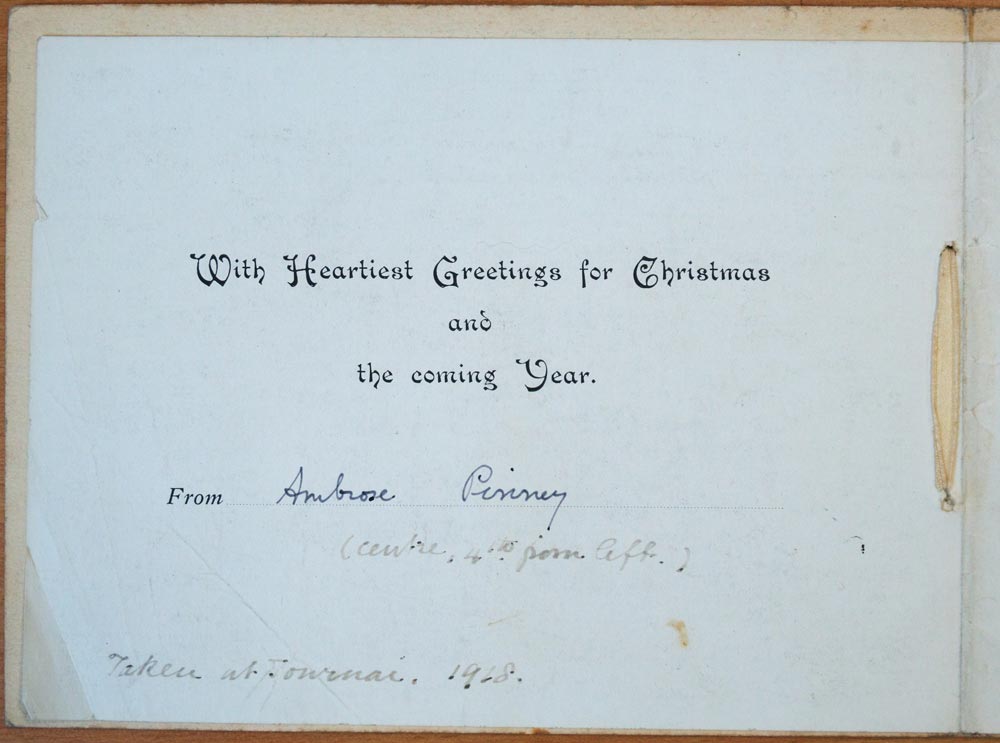 With Heartiest Greetings for Christmas
and
the coming Year.
From Ambrose Pinney
(centre, 4th from left.)
Taken at Tournai. 1918.